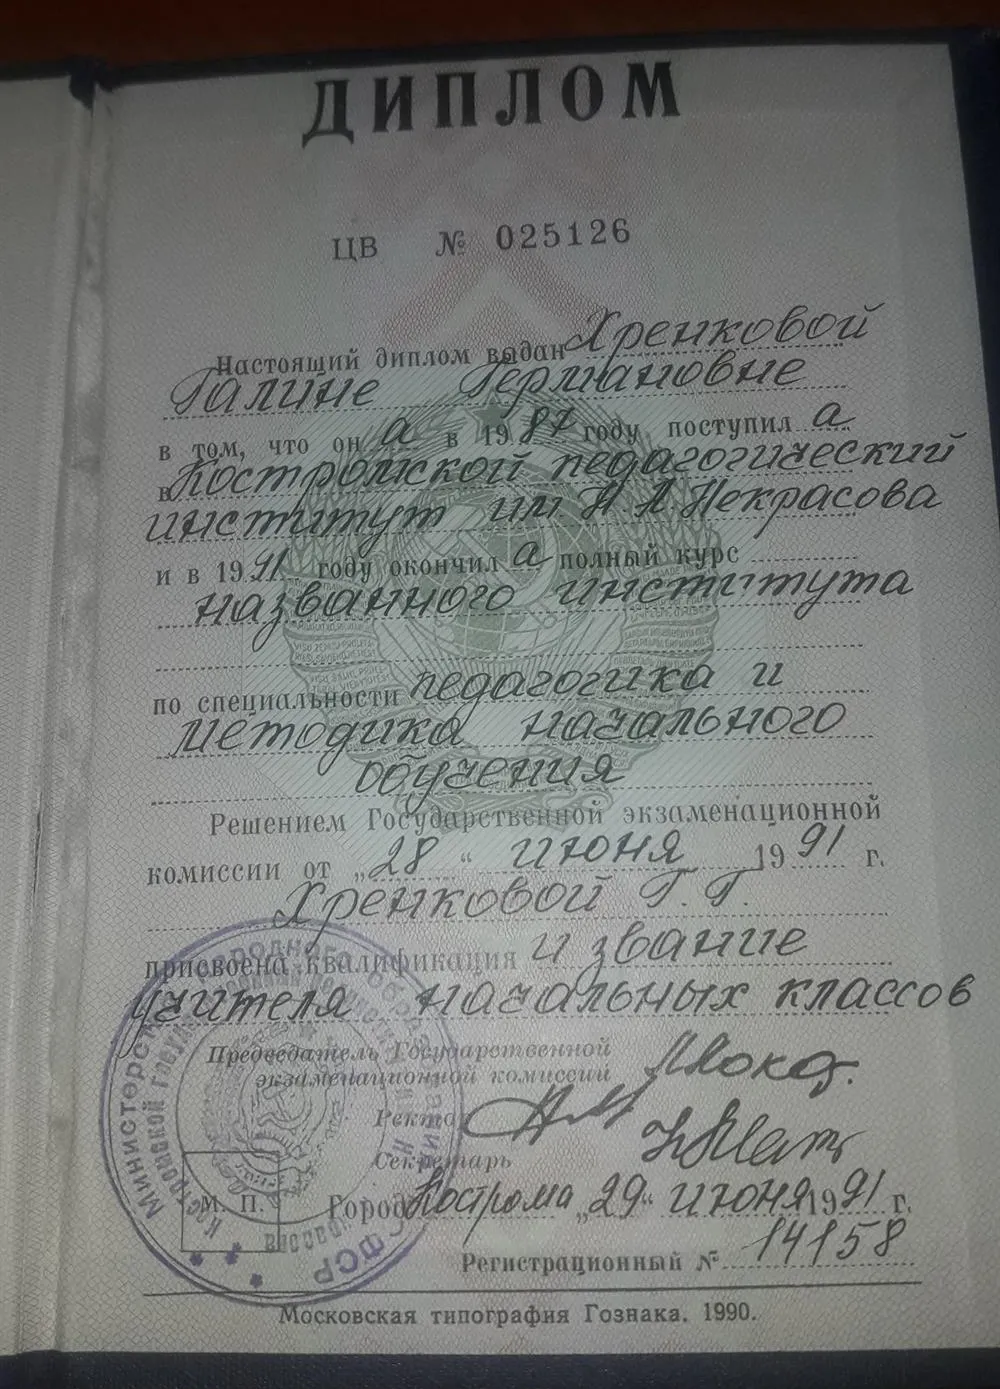 ДИПЛОМ
ЦВ № 025126
Настоящий диплом выдан Хренковой
Галине Германовне
в том, что он а в 1987 году поступил а
в Костромской педагогический
институт им Н.А.Некрасова
и в 1991 году окончил а полный курс
названного института
по специальности педагогика и
методика начального
обучения
Решением Государственной экзаменационной
комиссии от „28“ июня 1991 г.
Хренковой Г.Г.
присвоена квалификация и звание
учителя начальных классов
Председатель Государственной
экзаменационной комиссии
Ректор
Секретарь
М. П. Город Кострома „29“ июня 1991 г.
Регистрационный № 14158
Московская типография Гознака. 1990.